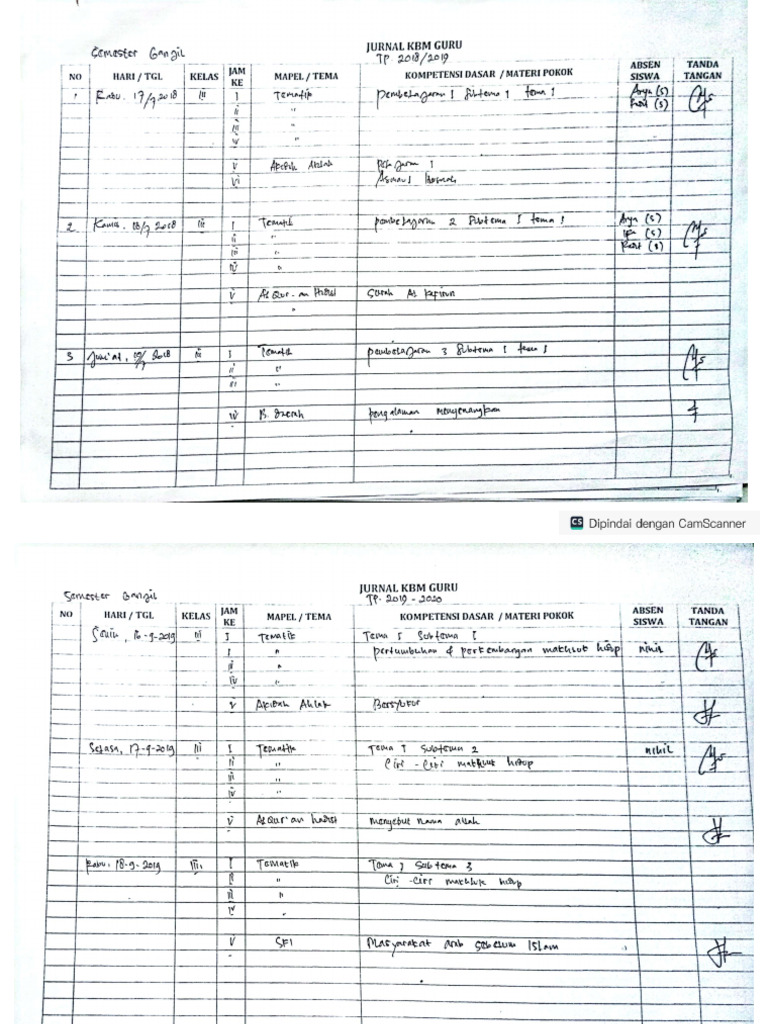 JURNAL KBM GURU
Semester Ganjil TP 2018/2019
NO HARI / TGL KELAS JAM KE MAPEL / TEMA KOMPETENSI DASAR / MATERI POKOK ABSEN SISWA TANDA TANGAN
1 Rabu. 17/7 2018 III I Tematik pembelajaran 1 Subtema 1 tema 1 Arya (S)
ii "
iii "
iv "
v Akidah Akhlak Pelajaran 1
vi Asmaul Husnah
2 Kamis. 18/7 2018 III I Tematik pembelajaran 2 Subtema 1 tema 1 Arya (S)
ii "
iii "
iv "
v Al Qur-an Hadis Surah Al Kafirun
"
3 Jum'at, 19/7 2018 III I Tematik pembelajaran 3 Subtema 1 tema 1
ii "
iii "
iv B. Daerah pengalaman menyenangkan
CS Dipindai dengan CamScanner
JURNAL KBM GURU
Semester Ganjil TP. 2019 - 2020
NO HARI / TGL KELAS JAM KE MAPEL / TEMA KOMPETENSI DASAR / MATERI POKOK ABSEN SISWA TANDA TANGAN
Senin, 16-9-2019 III I Tematik Tema 1 Subtema 1
I " pertumbuhan & perkembangan makhluk hidup nihil
iii "
iv "
v Akidah Akhlak Bersyukur
Selasa, 17-9-2019 III I Tematik Tema 1 Subtema 2 nihil
ii " Ciri-Ciri makhluk hidup
iii "
iv "
v Al Qur'an hadist menyebut nama allah
Rabu. 18-9-2019 III I Tematik Tema 1 Subtema 3
II " Ciri-Ciri makhluk hidup
III "
IV "
V SKI Masyarakat arab sebelum Islam